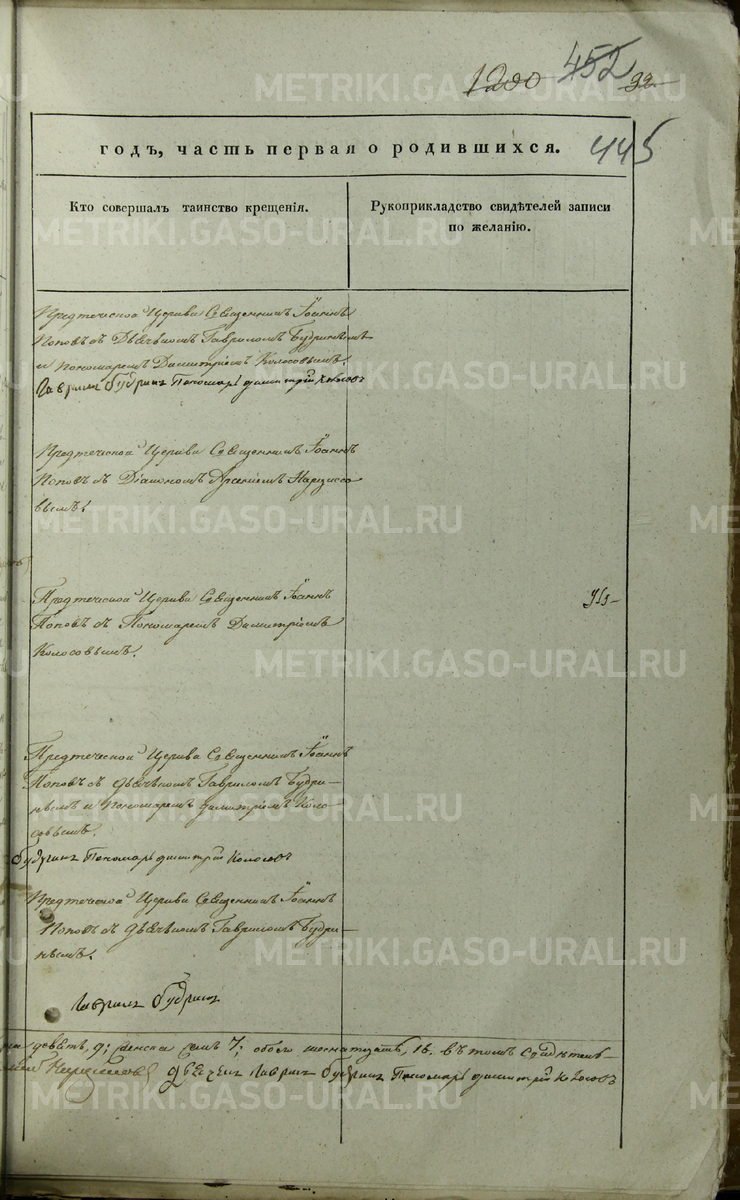 1200 452 92
445
годъ, часть первая о родившихся.
Кто совершалъ таинство крещенія.
Рукоприкладство свидѣтелей записи
по желанію.
Предтеческой Церкви Священникъ Іоаннъ
Поповъ съ Дьячкомъ Гавриломъ Будринымъ
и пономаремъ Димитріемъ Колосовымъ.
Гаврилъ Будринъ Пономарь Димитрій Колосовъ
Предтеческой Церкви Священникъ Іоаннъ
Поповъ съ Діакономъ Арсеніемъ Нарциссо
вымъ.
Предтеческой Церкви Священникъ Іоаннъ
Поповъ съ Пономаремъ Димитріемъ
Колосовымъ.
Предтеческой Церкви Священникъ Іоаннъ
Поповъ съ дьячкомъ Гавриломъ Будри-
нымъ и пономаремъ Димитріемъ Коло
совымъ.
Будринъ Пономарь Димитрій Колосовъ
Предтеческой Церкви Священникъ Іоаннъ
Поповъ съ дьячкомъ Гавриломъ Будри-
нымъ.
Гаврилъ Будринъ
девять, 9; женска семь 7; обоего шестнадцать, 16. въ томъ
Дьячекъ Гаврилъ Будринъ Пономарь Димитрій Колосовъ
METRIKI.GASO-URAL.RU